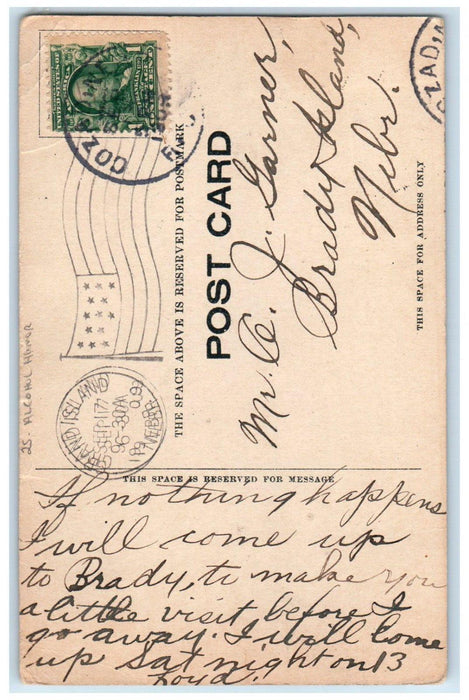 COZAD
GRAND ISLAND
SEP 17
6-30A
1909
NEBR.
25. ALCOHOL HUMOR
THE SPACE ABOVE IS RESERVED FOR POSTMARK
POST CARD
Mr. C. J. Garner,
Brady Island,
Nebr.
THIS SPACE FOR ADDRESS ONLY
THIS SPACE IS RESERVED FOR MESSAGE
If nothing happens
I will come up
to Brady, to make you
a little visit before I
go away. I will come
up Sat night on 13
Loyd.